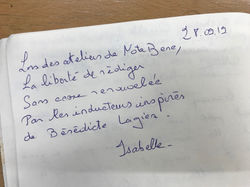 28.09.19
Lors des ateliers de Nota Bene,
La liberté de rédiger
Sans cesse renouvelée
Par les inducteurs inspirés
de Bénédicte Lagier.
Isabelle